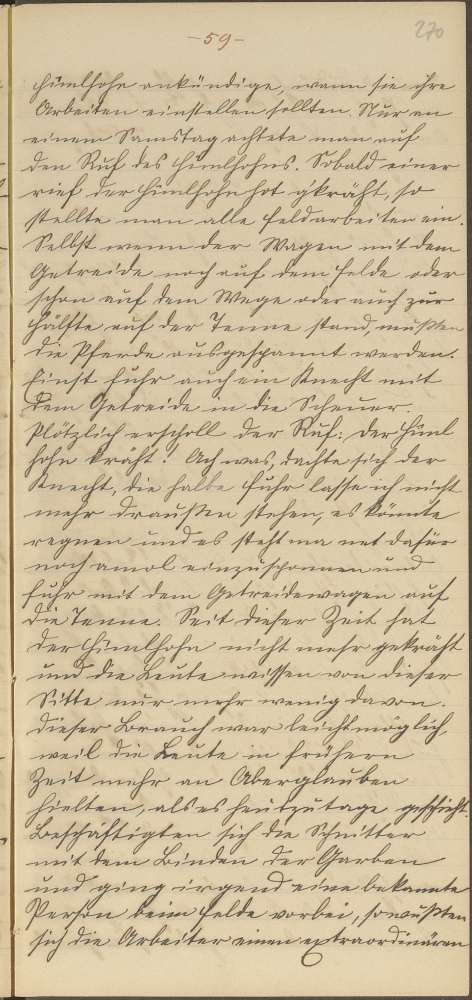 -59-
270
Hünlhohn ankündige, wann sie ihre
Arbeiten einstellen sollten. Nur an
einem Samstag achtete man auf
den Ruf des Hünlhohns. Sobald einer
rief der Hünlhohn hot gkräht, so
stellte man alle Feldarbeiten ein.
Selbst wenn der Wagen mit dem
Getreide noch auf dem Felde oder
schon auf dem Wege oder auch zur
Hälfte auf der Tenne stand, mußten
die Pferde ausgespannt werden.
Einst fuhr auch ein Knecht mit
dem Getreide in die Scheuer.
Plötzlich erscholl der Ruf: der Hünl
hohn kräht! Ach was, dachte sich der
Knecht, die halbe Fuhr lasse ich nicht
mehr draußen stehen, es könnte
regnen und es steht ma net dafür
noch amol einzuschponnen und
fuhr mit dem Getreidewagen auf
die Tenne. Seit dieser Zeit hat
der Hünlhohn nicht mehr gekräht
und die Leute wissen von dieser
Sitte nur mehr wenig davon.
Dieser Brauch war leicht möglich,
weil die Leute in frühern
Zeit mehr an Aberglauben
hielten, als es heutzutage geschieht.
Beschäftigten sich die Schnitter
mit dem Binden der Garben
und ging irgend eine bekannte
Person beim Felde vorbei, so wußten
sich die Arbeiter einen extraordinären